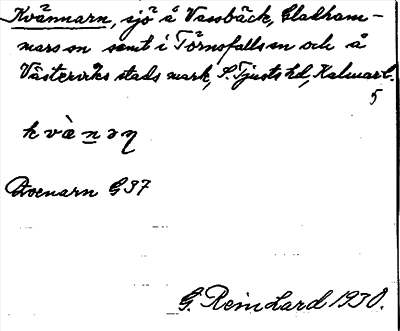 Kvännarn, sjö å Vassbäck, Gladham-
mars sn samt i Törnsfalls sn och å
Västerviks stads mark, S. Tjusts hd, Kalmar l.
5
kvänəɳ
Qvenarn G37
G. Reinhard 1930.